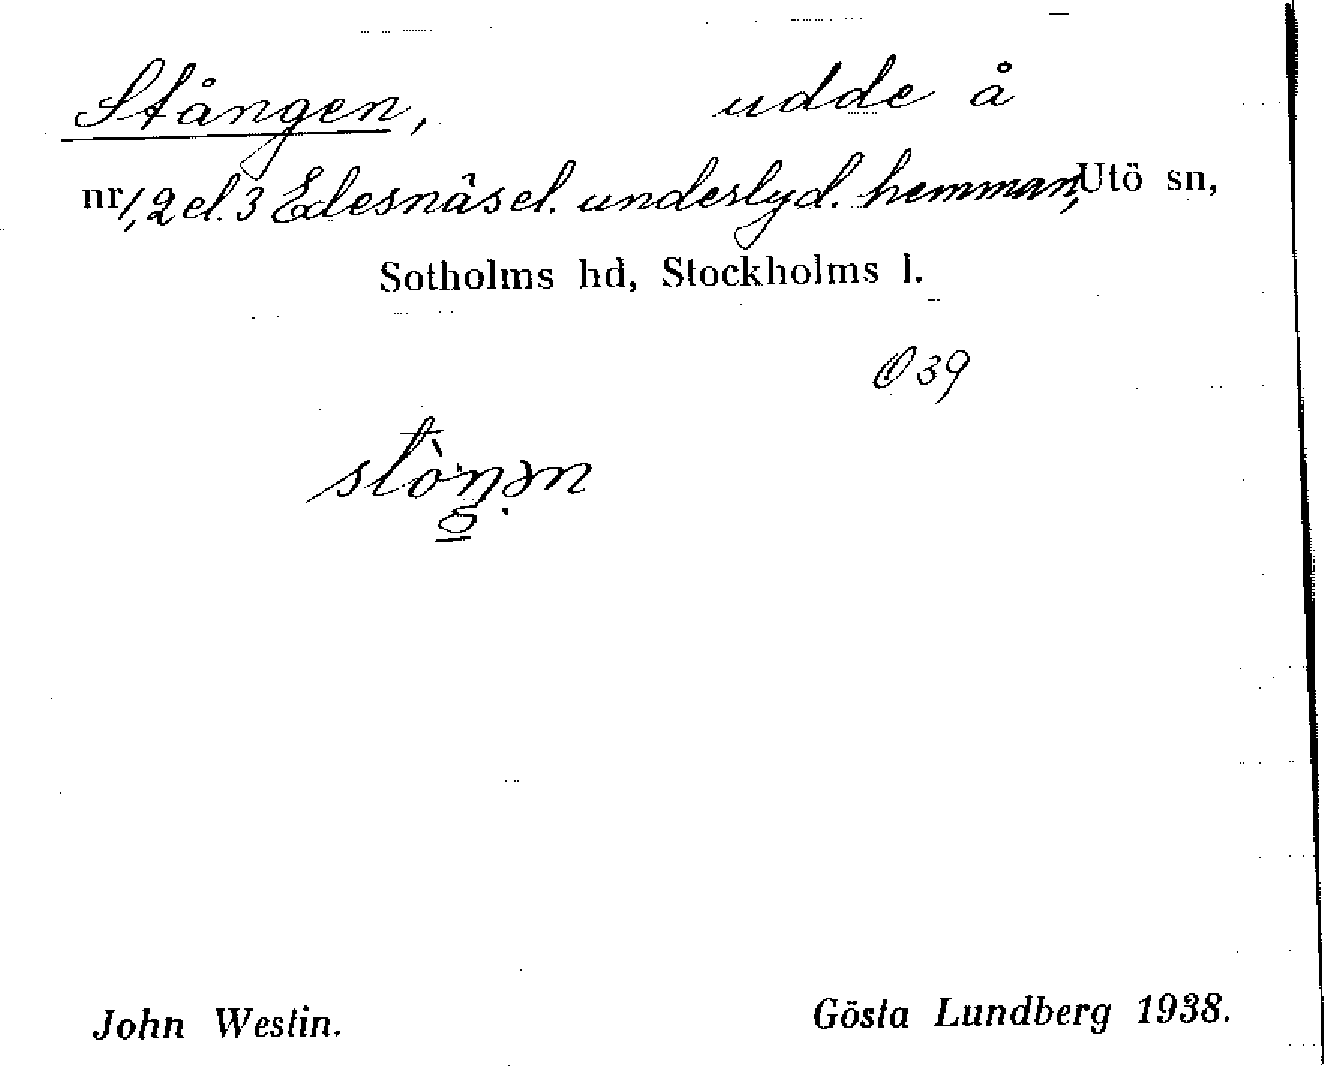 Stången, udde å
nr 1, 2 el. 3 Edesnäs el. underlyd. hemman, Utö sn,
Sotholms hd, Stockholms l.
O 39
stòŋən
John Westin. Gösta Lundberg 1938.